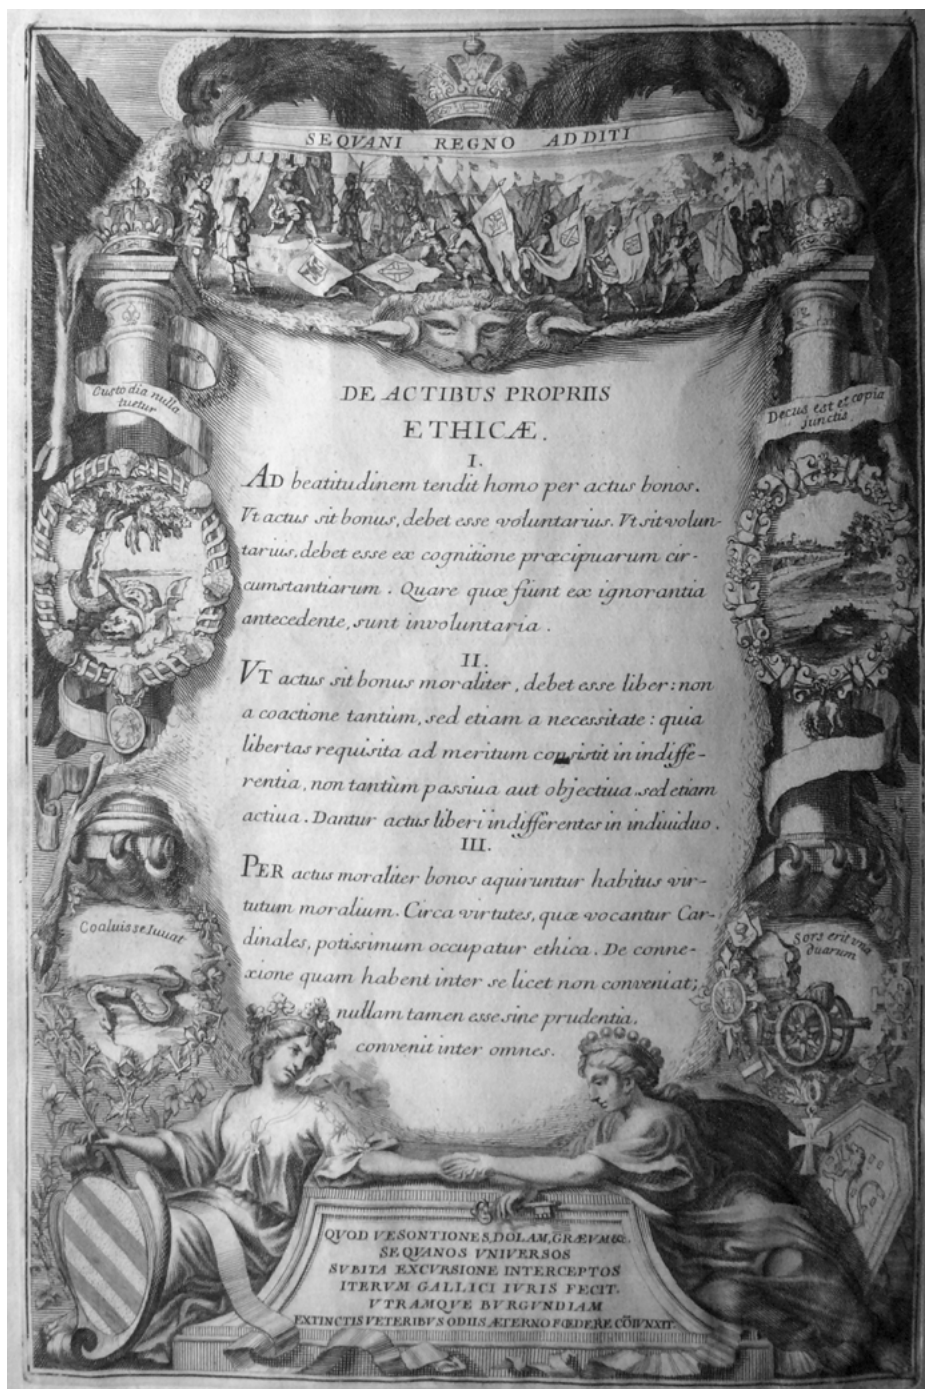 SEQVANI REGNO ADDITI
Custodia nulla
tuetur
Decus est et copia
junctis.
DE ACTIBUS PROPRIIS
ETHICÆ.
I.
AD beatitudinem tendit homo per actus bonos.
Vt actus sit bonus, debet esse voluntarius. Vt sit volun-
tarius, debet esse ex cognitione præcipuarum cir-
cumstantiarum. Quare quæ fiunt ex ignorantia
antecedente, sunt involuntaria.
II.
VT actus sit bonus moraliter, debet esse liber: non
a coactione tantùm, sed etiam a necessitate: quia
libertas requisita ad meritum consistit in indiffe-
rentia, non tantùm passiua aut objectiua sed etiam
actiua. Dantur actus liberi indifferentes in indiuiduo.
III.
PER actus moraliter bonos aquiruntur habitus vir-
tutum moralium. Circa virtutes, quæ vocantur Car-
dinales, potissimum occupatur ethica. De conne-
xione quam habent inter se licet non conveniat;
nullam tamen esse sine prudentia,
convenit inter omnes.
Coaluisse Iuuat
Sors erit vna
duarum
QVOD VESONTIONES, DOLAM, GRÆVM &c.
SEQVANOS VNIVERSOS
SVBITA EXCVRSIONE INTERCEPTOS
ITERVM GALLICI IVRIS FECIT.
VTRAMQVE BVRGVNDIAM
EXTINCTIS VETERIBVS ODIIS ÆTERNO FŒDERE CÕIVNXIT.